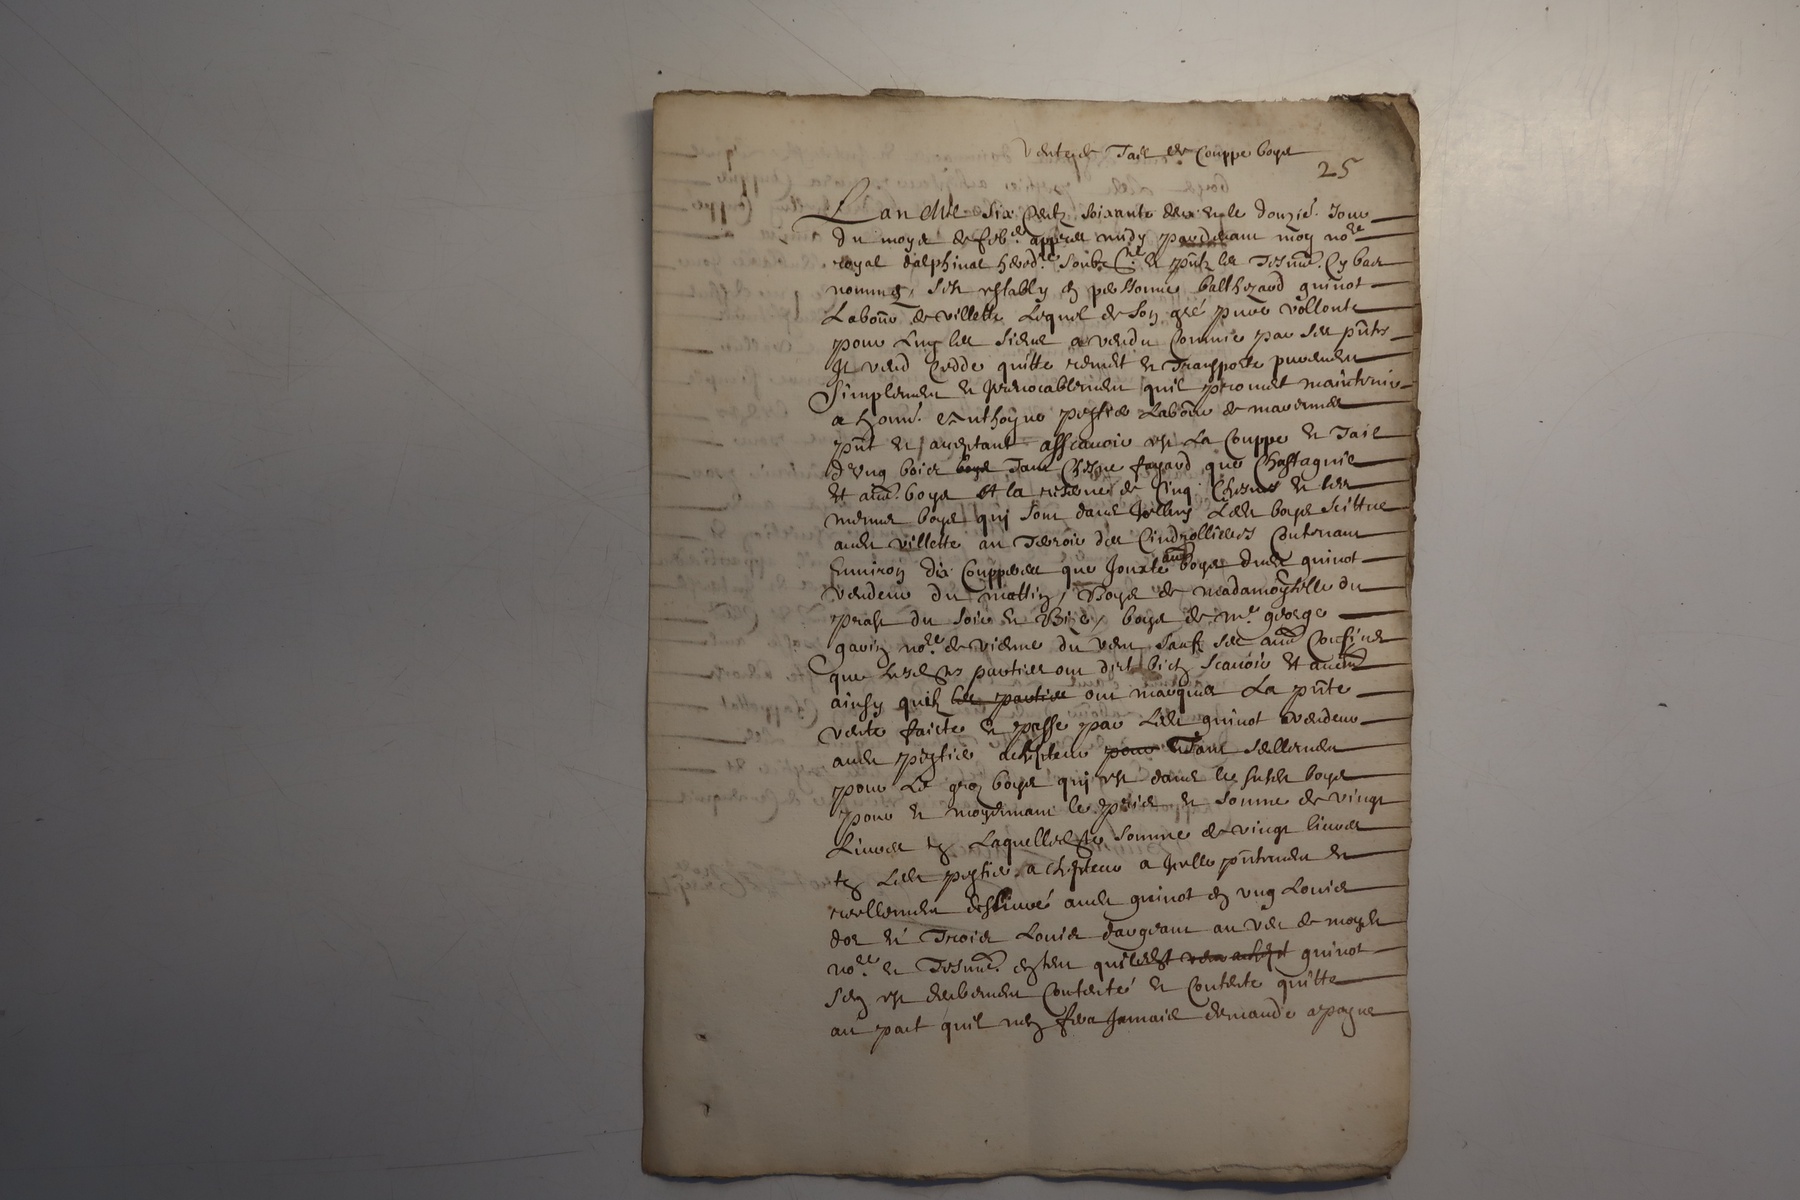 Vente de Tail et Couppe boys
25
L an Mil six Centz soixante deux et le douzie. Jour
du moys de feb.er appres midy pardevant moy no.re
royal dalphinal hered.re soubz.né et pntz les Tesmo. Cy bas
nommes, sest estably en personne balthezard guinot
Labour de villette Lequel de son gré pure vollonte
pour Luy les siens a vendu Comme par ses pntes
Il vend Cedde quitte remet et Transporte purement
simplement et Irrevocablement quil promet maintenir
a honn. Anthoyne Labour de
pnt et aceptant assavoir est La Couppe et Tail
d'Ung bois boys Tant Chesne fayard que Chastagnie
et autt. boys et la reserve de Cinq Chesnes et les
mesmes boys qui sont dans Ledt boys scittue
audt villette au Terroir des Contenant
Environ dix Coupperees que Jouxte aut. boys dudt guinot
vendeur du mattin, Boys de madamoyselle du
prast du soir et Bize, boys de m.e george
gavin no.re de vienne du vent saufz ses autt Confins
que lesdes parties ont dict bien scavoir et
ainsy quilz les parties ont marques La pnte
vente faicte et passe par Ledt guinot vendeur
audt achepteur pour et Tant seullement
pour Le groz boys qui est dans le susdt boys
pour et moyenant le prix et somme de vingt
Livres tz Laquelle de somme de vingt livres
tz Ledt achepteur a Icelle pntement et
reellement deslivré audt guinot en ung Louis
dor et Trois Louis dargeant au veu de moydt
no.re et Tesmo. quil guinot
sen est Contenté et Contente quitte
au pact quil nen fera Jamais demande